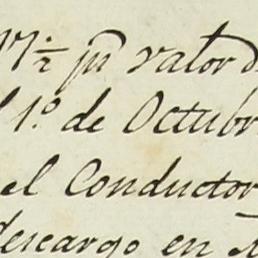 valor d
1º de Octubr
el Conductor
descargo en